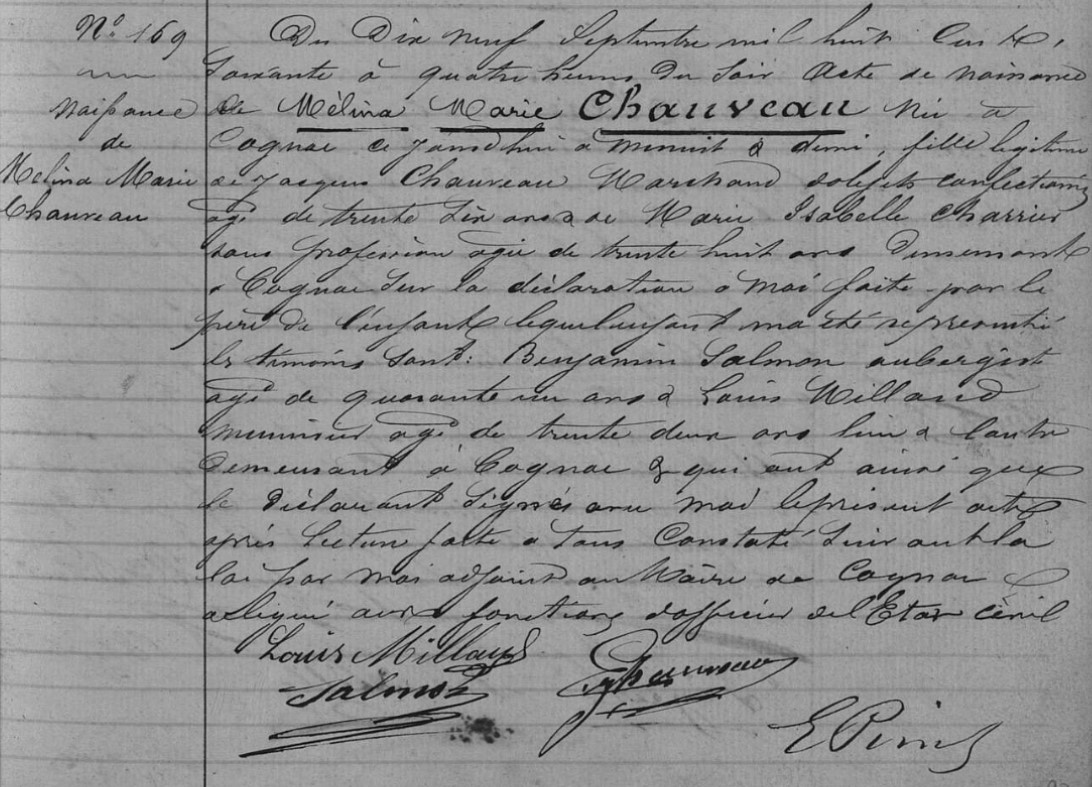 N° 169
Naissance
de
Mélina Marie
Chauveau
Du Dix neuf Septembre mil huit Cent
Soixante à quatre heures du Soir Acte de naissance
de Mélina Marie Chauveau Née à
Cognac ce jourdhui à minuit & demi, fille légitime
de Jacques Chauveau Marchand dobjets confectionnés
agé de trente Six ans & de Marie Isabelle Charrier
sans profession agée de trente huit ans Demeurant
à Cognac Sur la déclaration à moi faite par le
père de l'enfant lequel enfant ma été représenté
les témoins sont: Benjamin Salmon aubergiste
agé de quarante un ans & Louis Millaud
menuisier agé de trente deux ans lun & lautre
Demeurant à Cognac & qui ont ainsi que
le Déclarant Signés avec moi le présent acte
après Lecture faite à tous Constaté Suivant la
loi par moi adjoint au Maire de Cognac
délégué aux fonctions dofficier de l'Etat civil
Louis Millaud
Salmon